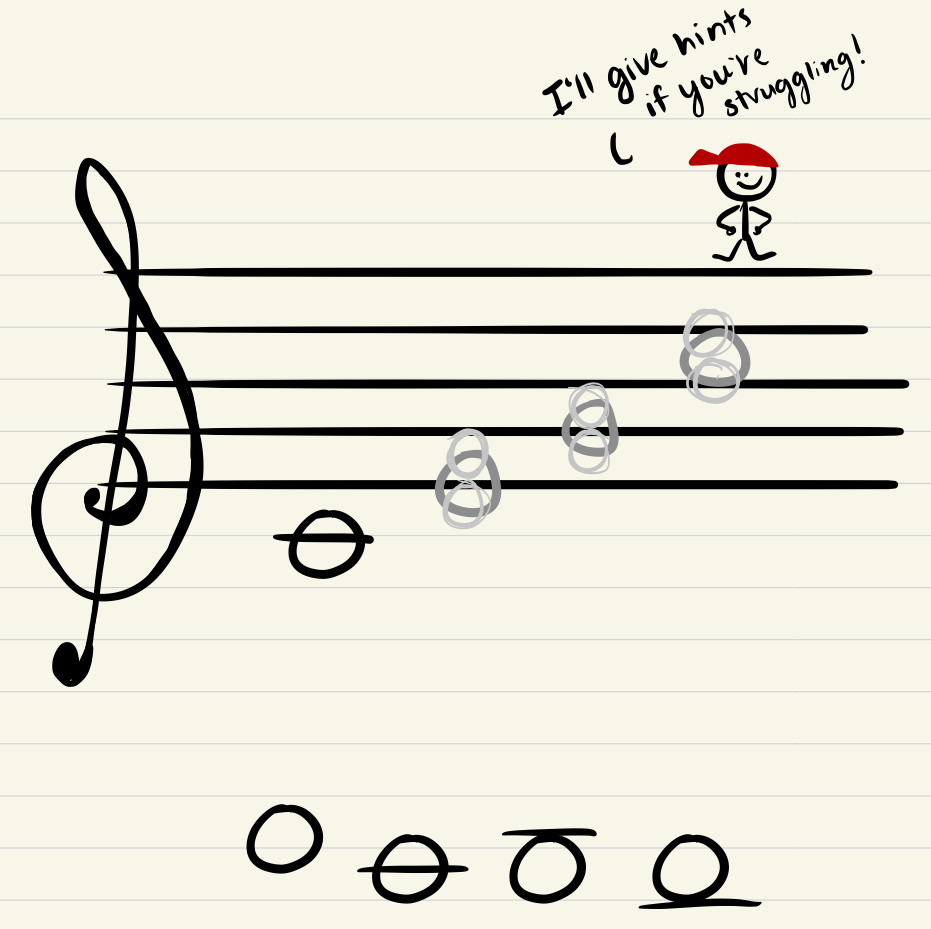 I'll give hints
if you're
struggling!